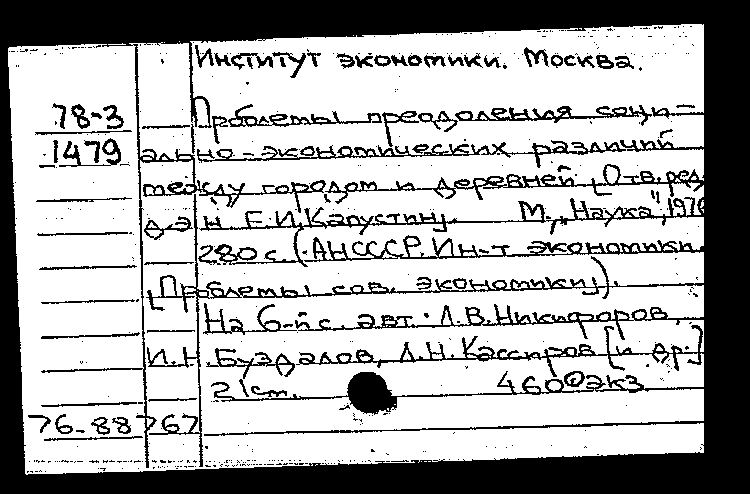 Институт экономики. Москва.
78-3 Проблемы преодоления соци-
1479 ально-экономических различий
между городом и деревней [Отв. ред.
д.э.н Е.И. Капустин]. М., "Наука", 1976
280 с. (АНСССР. Ин-т экономики.
[Проблемы сов. экономики]).
На 6-й с. авт.: Л.В. Никифоров,
И.Н. Буздалов, Л.Н. Кассиров [и др.]
21 см. 4600 экз.
76-88767